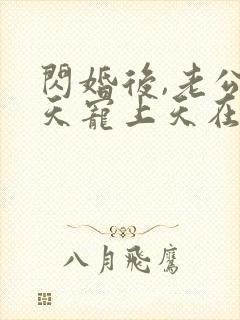 閃婚後,老公
天寵上天在
八月飛鷹